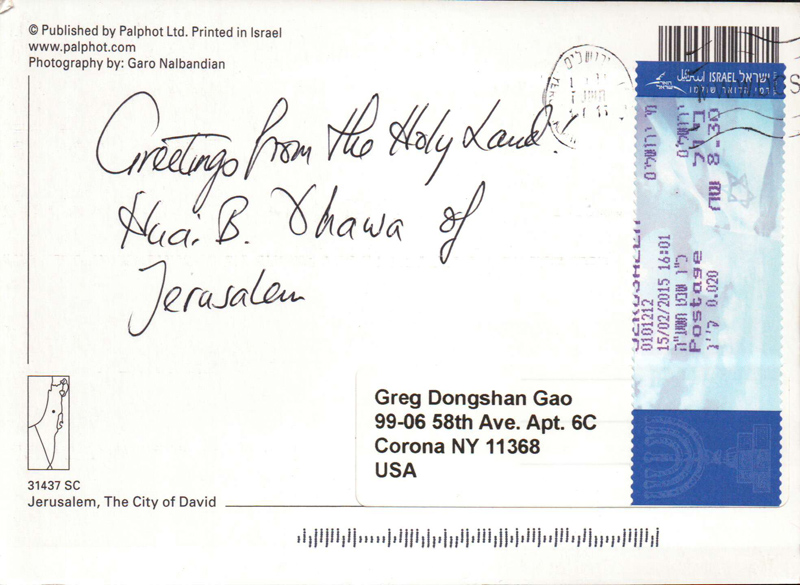 © Published by Palphot Ltd. Printed in Israel
www.palphot.com
Photography by: Garo Nalbandian
Greetings from the Holy Land
Huai B. Dhawa of
Jerusalem
31437 SC
Jerusalem, The City of David
Greg Dongshan Gao
99-06 58th Ave. Apt. 6C
Corona NY 11368
USA
ישראל ISRAEL
ירושלים
8-30
0101212
15/02/2015 16:01
Postage
0.020